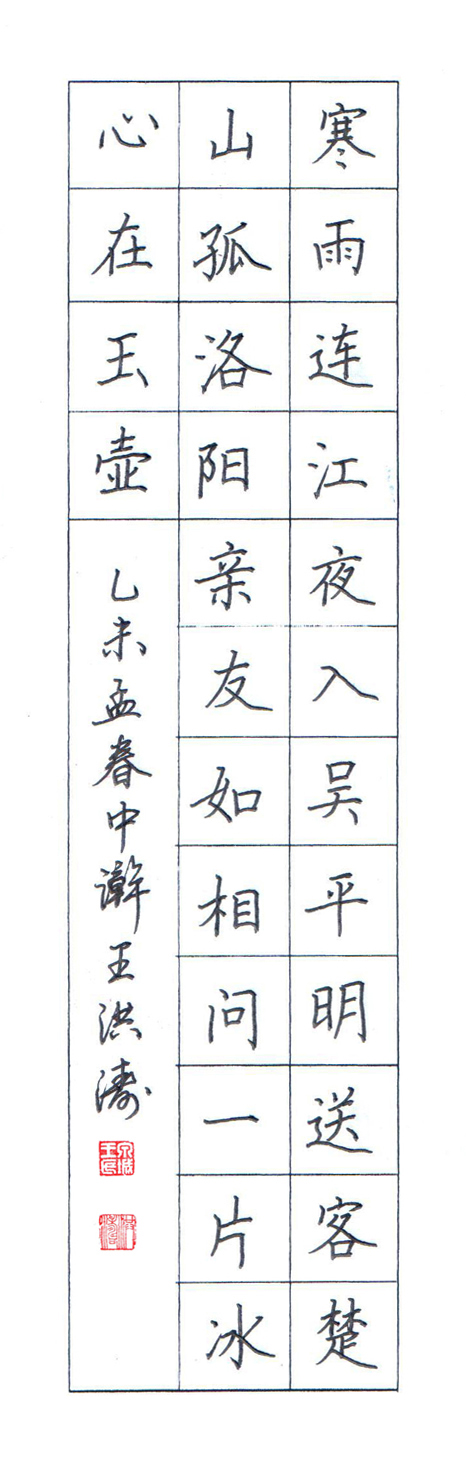 寒雨连江夜入吴平明送客楚
山孤洛阳亲友如相问一片冰
心在玉壶
乙未孟春中澣王洪涛